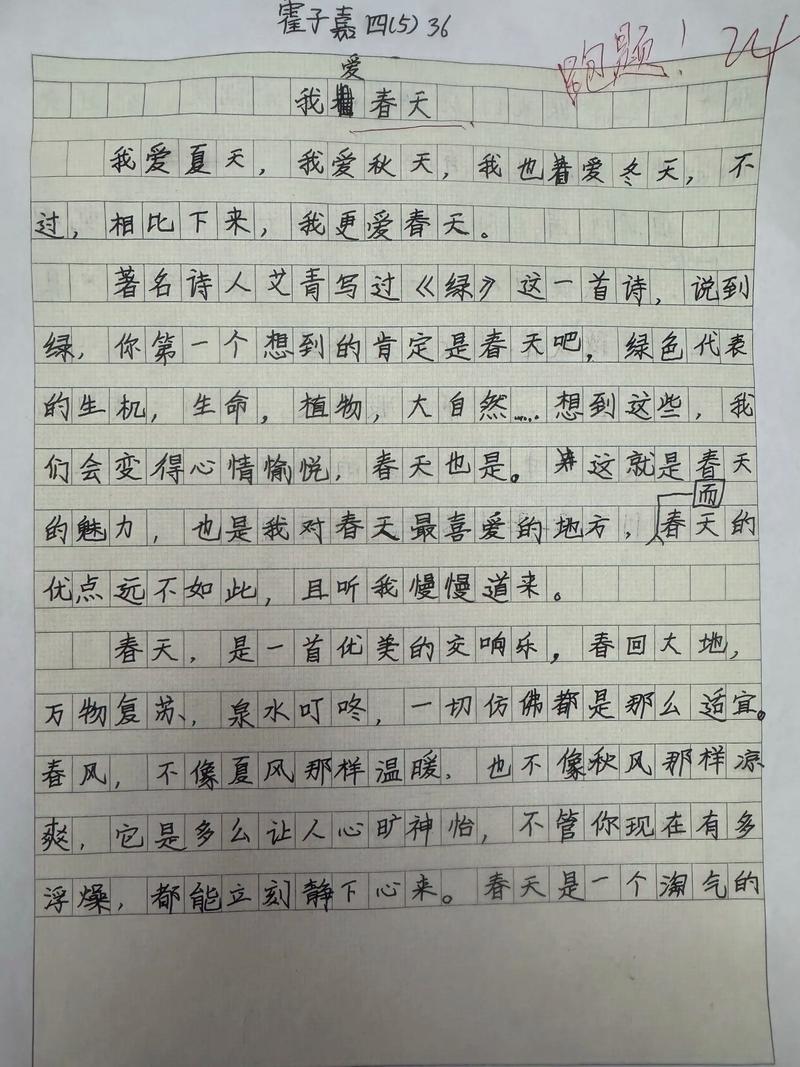 霍子嘉 四(5) 36
跑题! 24
爱
我春天
我爱夏天，我爱秋天，我也着爱冬天，不
过，相比下来，我更爱春天。
著名诗人艾青写过《绿》这一首诗，说到
绿，你第一个想到的肯定是春天吧，绿色代表
的生机，生命，植物，大自然……想到这些，我
们会变得心情愉悦，春天也是。这就是春天
而
的魅力，也是我对春天最喜爱的地方，春天的
优点远不如此，且听我慢慢道来。
春天，是一首优美的交响乐，春回大地，
万物复苏、泉水叮咚，一切仿佛都是那么适宜。
春风，不像夏风那样温暖，也不像秋风那样凉
爽，它是多么让人心旷神怡，不管你现在有多
浮燥，都能立刻静下心来。春天是一个淘气的